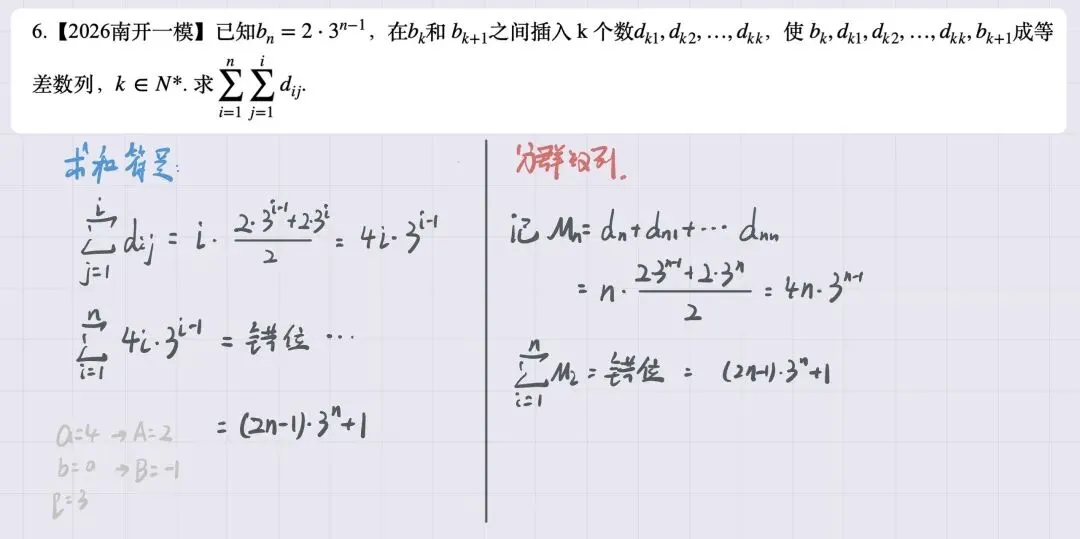 6.【2026南开一模】已知bₙ = 2 · 3ⁿ⁻¹，在bₖ和 bₖ₊₁之间插入 k 个数dₖ₁, dₖ₂, …, dₖₖ，使 bₖ, dₖ₁, dₖ₂, …, dₖₖ, bₖ₊₁成等
差数列，k ∈ N*. 求 \sum_{i=1}^{n} \sum_{j=1}^{i} d_{ij}.
求和符号:
\sum_{j=1}^{i} d_{ij} = i · \frac{2·3^{i-1}+2·3^{i}}{2} = 4i·3^{i-1}
\sum_{i=1}^{n} 4i·3^{i-1} = 错位 …
= (2n-1)·3ⁿ+1
a=4 → A=2
b=0 → B=-1
q=3
分群数列.
记 Mₙ = dₙ+dₙ₁+… dₙₙ
= n · \frac{2·3^{n-1}+2·3^{n}}{2} = 4n·3^{n-1}
\sum_{i=1}^{n} M₂ = 错位 = (2n-1)·3ⁿ+1